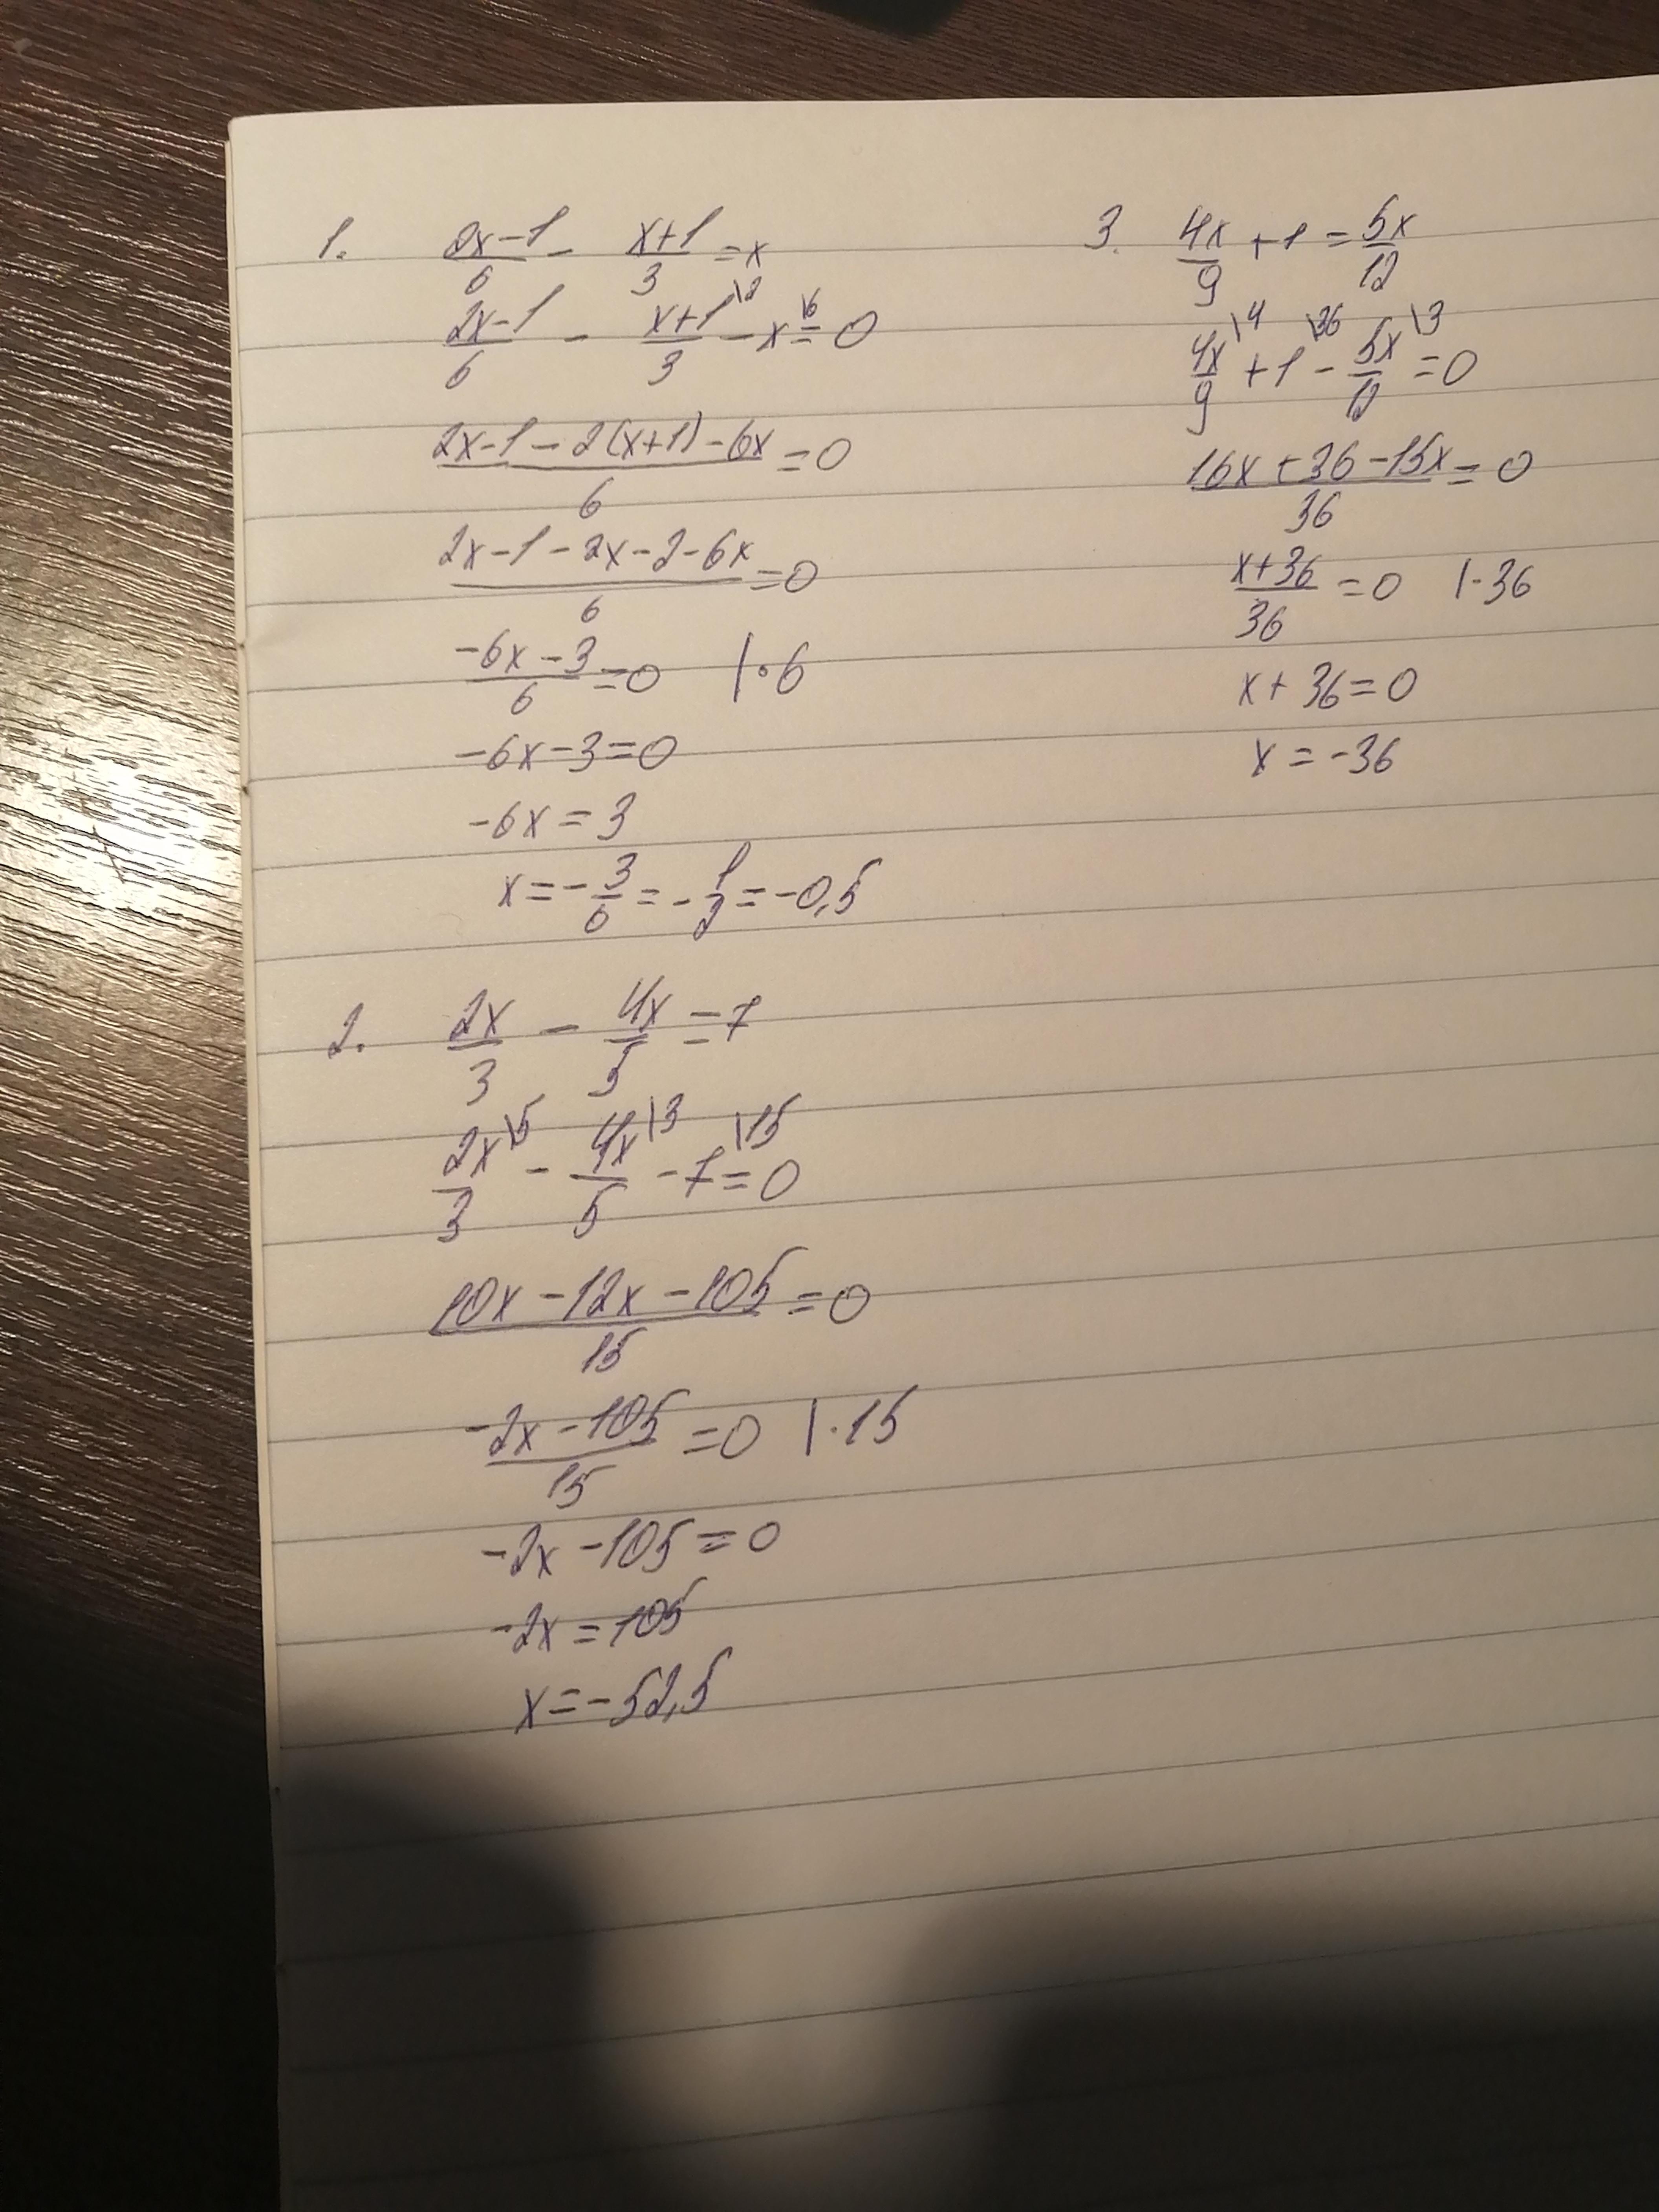 1. (2x-1)/6 - (x+1)/3 = x
(2x-1)/6 - (x+1)/3 \2 - x \6 = 0
(2x-1-2(x+1)-6x)/6 = 0
(2x-1-2x-2-6x)/6 = 0
(-6x-3)/6 = 0 |·6
-6x-3=0
-6x=3
x=-3/6=-1/2=-0,5
2. 2x/3 - 4x/5 = 7
2x/3 \5 - 4x/5 \3 - 7 \15 = 0
(10x-12x-105)/15 = 0
(-2x-105)/15 = 0 |·15
-2x-105=0
-2x=105
x=-52,5
3. 4x/9 + 1 = 5x/12
4x/9 \4 + 1 \36 - 5x/12 \3 = 0
(16x+36-15x)/36 = 0
(x+36)/36 = 0 |·36
x+36=0
x=-36